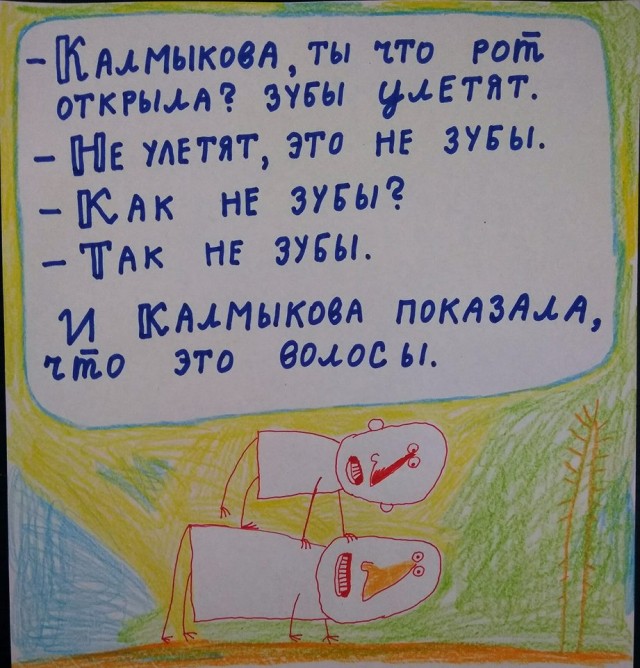 - Калмыкова, ты что рот
открыла? Зубы улетят.
- Не улетят, это не зубы.
- Как не зубы?
- Так не зубы.
И Калмыкова показала,
что это волосы.